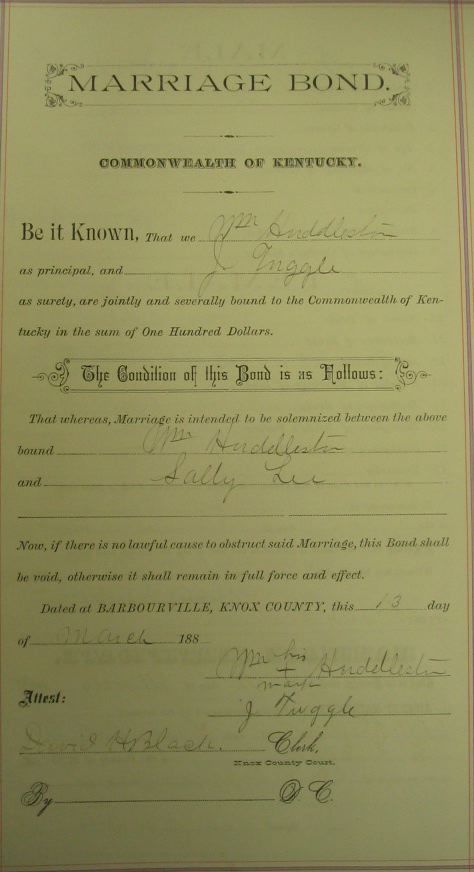 MARRIAGE BOND.
COMMONWEALTH OF KENTUCKY.
Be it Known, That we Wm Huddleston
as principal, and J Tuggle
as surety, are jointly and severally bound to the Commonwealth of Ken-
tucky in the sum of One Hundred Dollars.
The Condition of this Bond is as Follows:
That whereas, Marriage is intended to be solemnized between the above
bound Wm Huddleston
and Sally Lee
Now, if there is no lawful cause to obstruct said Marriage, this Bond shall
be void, otherwise it shall remain in full force and effect.
Dated at BARBOURVILLE, KNOX COUNTY, this 13 day
of March 188
Wm his + mark Huddleston
Attest: J. Tuggle
David H Black. Clerk,
Knox County Court.
By D. C.